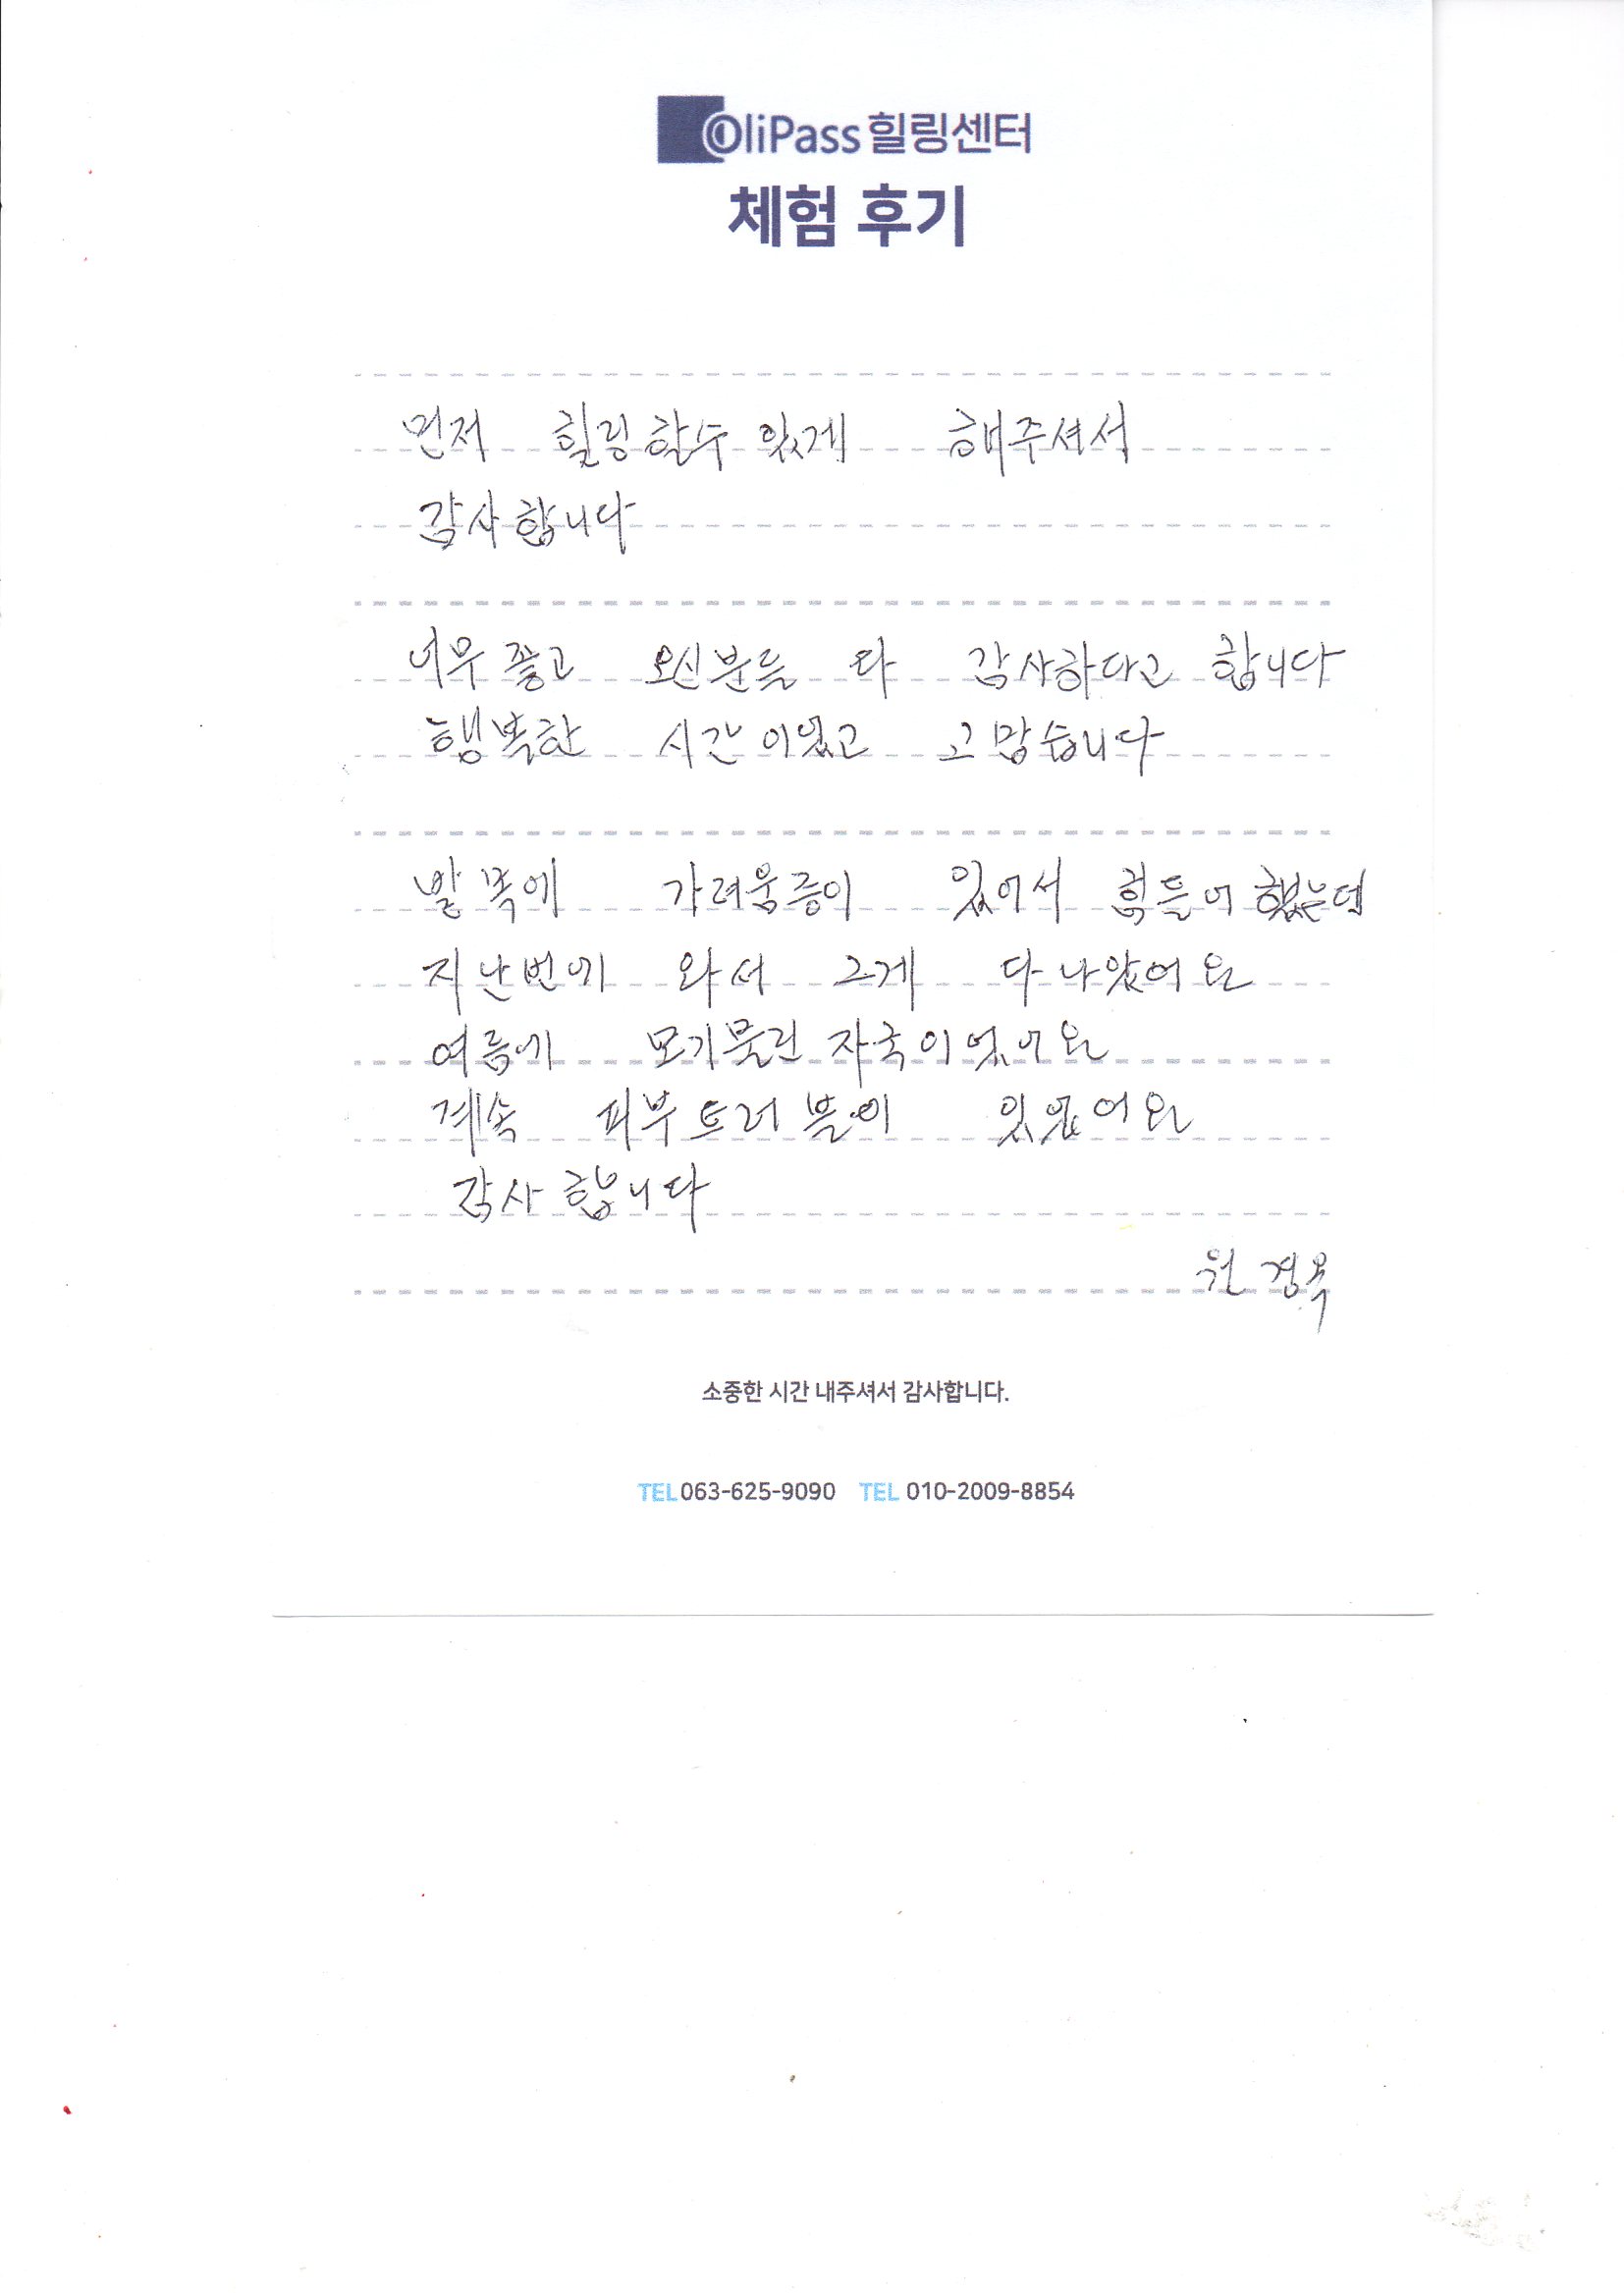 OliPass 힐링센터
체험 후기
먼저 힐링 할수 있게 해주셔서
감사합니다
너무 좋고 오신분들 다 감사하다고 합니다
행복한 시간이었고 고맙습니다
발목에 가려움증이 있어서 힘들어 했는데
지난번에 와서 그게 다 나았어요
여름에 모기물린 자국이었어요
계속 피부트러블이 있었어요
감사합니다
원경옥
소중한 시간 내주셔서 감사합니다.
TEL 063-625-9090 TEL 010-2009-8854